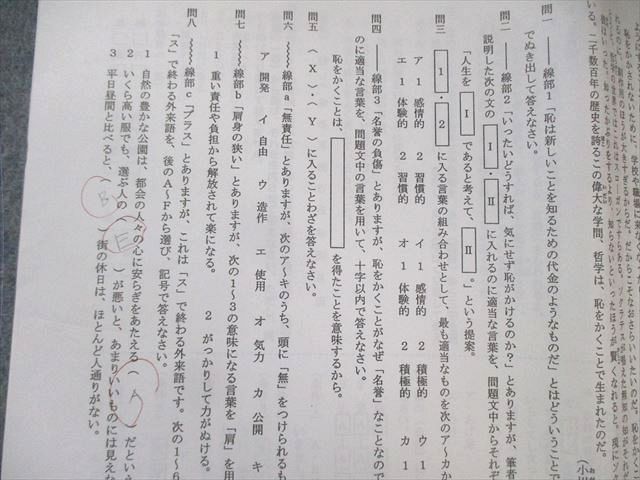 いる。二千数百年の歴史を誇るこの偉大な学問、哲学は、恥をかくことで生まれたのだ。
(小川
問一 ――線部1「恥は新しいことを知るための代金のようなものだ」とはどういうことで
でぬき出して答えなさい。
問二 ――線部2「いったいどうすれば、気にせず恥がかけるのか?」とありますが、筆者
説明した次の文の Ⅰ ・ Ⅱ に入れるのに適当な言葉を、問題文中からそれぞ
「人生を Ⅰ であると考えて、 Ⅱ 。」という提案。
問三 1 ・ 2 に入る言葉の組み合わせとして、最も適当なものを次のア〜カか
ア 1 感情的 2 習慣的 イ 1 感情的 2 積極的 ウ 1
エ 1 体験的 2 習慣的 オ 1 体験的 2 積極的 カ 1
問四 ――線部3「名誉の負傷」とありますが、恥をかくことがなぜ「名誉」なことなので
のに適当な言葉を、問題文中の言葉を用いて、十字以内で答えなさい。
恥をかくことは、 を得たことを意味するから。
問五 (X)・(Y)に入ることわざを答えなさい。
問六 〜〜線部a「無責任」とありますが、次のア〜キのうち、頭に「無」をつけられるも
ア 開発 イ 自由 ウ 造作 エ 使用 オ 気力 カ 公開 キ
問七 〜〜線部b「肩身の狭い」とありますが、次の1〜3の意味になる言葉を「肩」を用
1 重い責任や負担から解放されて楽になる。 2 がっかりして力がぬける。
問八 〜〜線部c「プラス」とありますが、これは「ス」で終わる外来語です。次の1〜6
「ス」で終わる外来語を、後のA〜Fから選び、記号で答えなさい。
1 自然の豊かな公園は、都会の人々の心に安らぎをあたえる( A )だという
2 いくら高い服でも、選ぶ人の( E )が悪いと、あまりいいものには見えな
3 平日昼間と比べると、( B )街の休日は、ほとんど人通りがない。